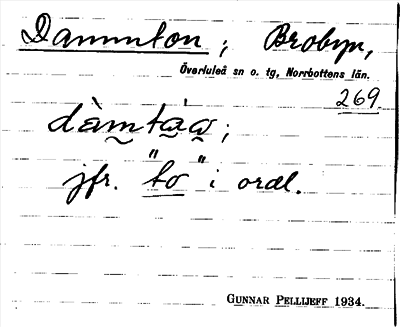 Dammton; Brobyn,
Överluleå sn o. tg, Norrbottens län.
269
dàmtạ́ọ;
jfr. "to" i oral.
GUNNAR PELLIJEFF 1934.